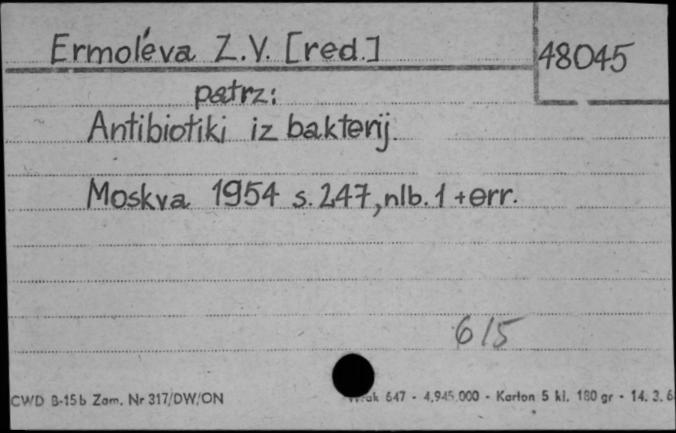 Ermoléva Z.V. [red.]
48045
patrz:
Antibiotiki iz bakterij.
Moskva 1954 s. 247, nlb. 1 + err.
615
CWD B-15b Zam. Nr 317/DW/ON
647 - 4.945.000 - Karton 5 kl. 180 gr - 14. 3. 6